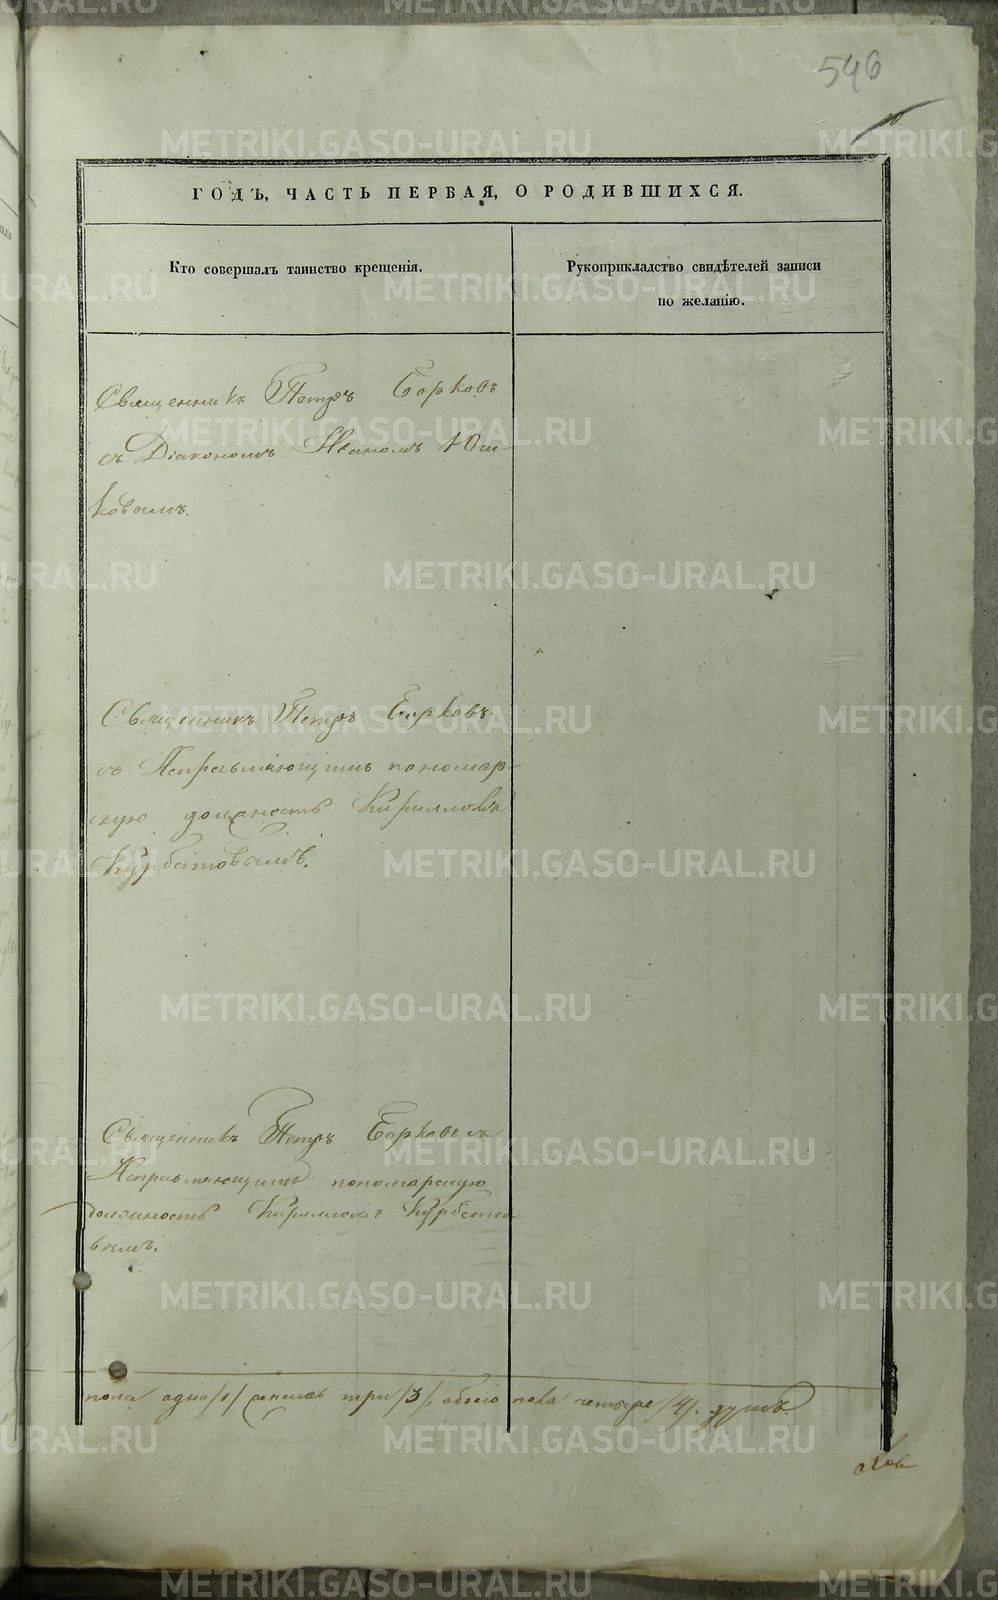 546
ГОДЪ, ЧАСТЬ ПЕРВАЯ, О РОДИВШИХСЯ.
Кто совершалъ таинство крещенія.
Рукоприкладство свидѣтелей записи
по желанію.
Священникъ Петръ Борковъ
съ Діакономъ Иваномъ Юш-
ковымъ.
Священникъ Петръ Борковъ
съ Исправляющимъ пономар-
скую должность Кирилломъ
Курбатовымъ.
Священникъ Петръ Борковъ съ
Исправляющимъ пономарскую
должность Кирилломъ Курбато
вымъ.
пола одно /1/ женска три /3/, обоего пола четыре /4/. душъ.
METRIKI.GASO-URAL.RU